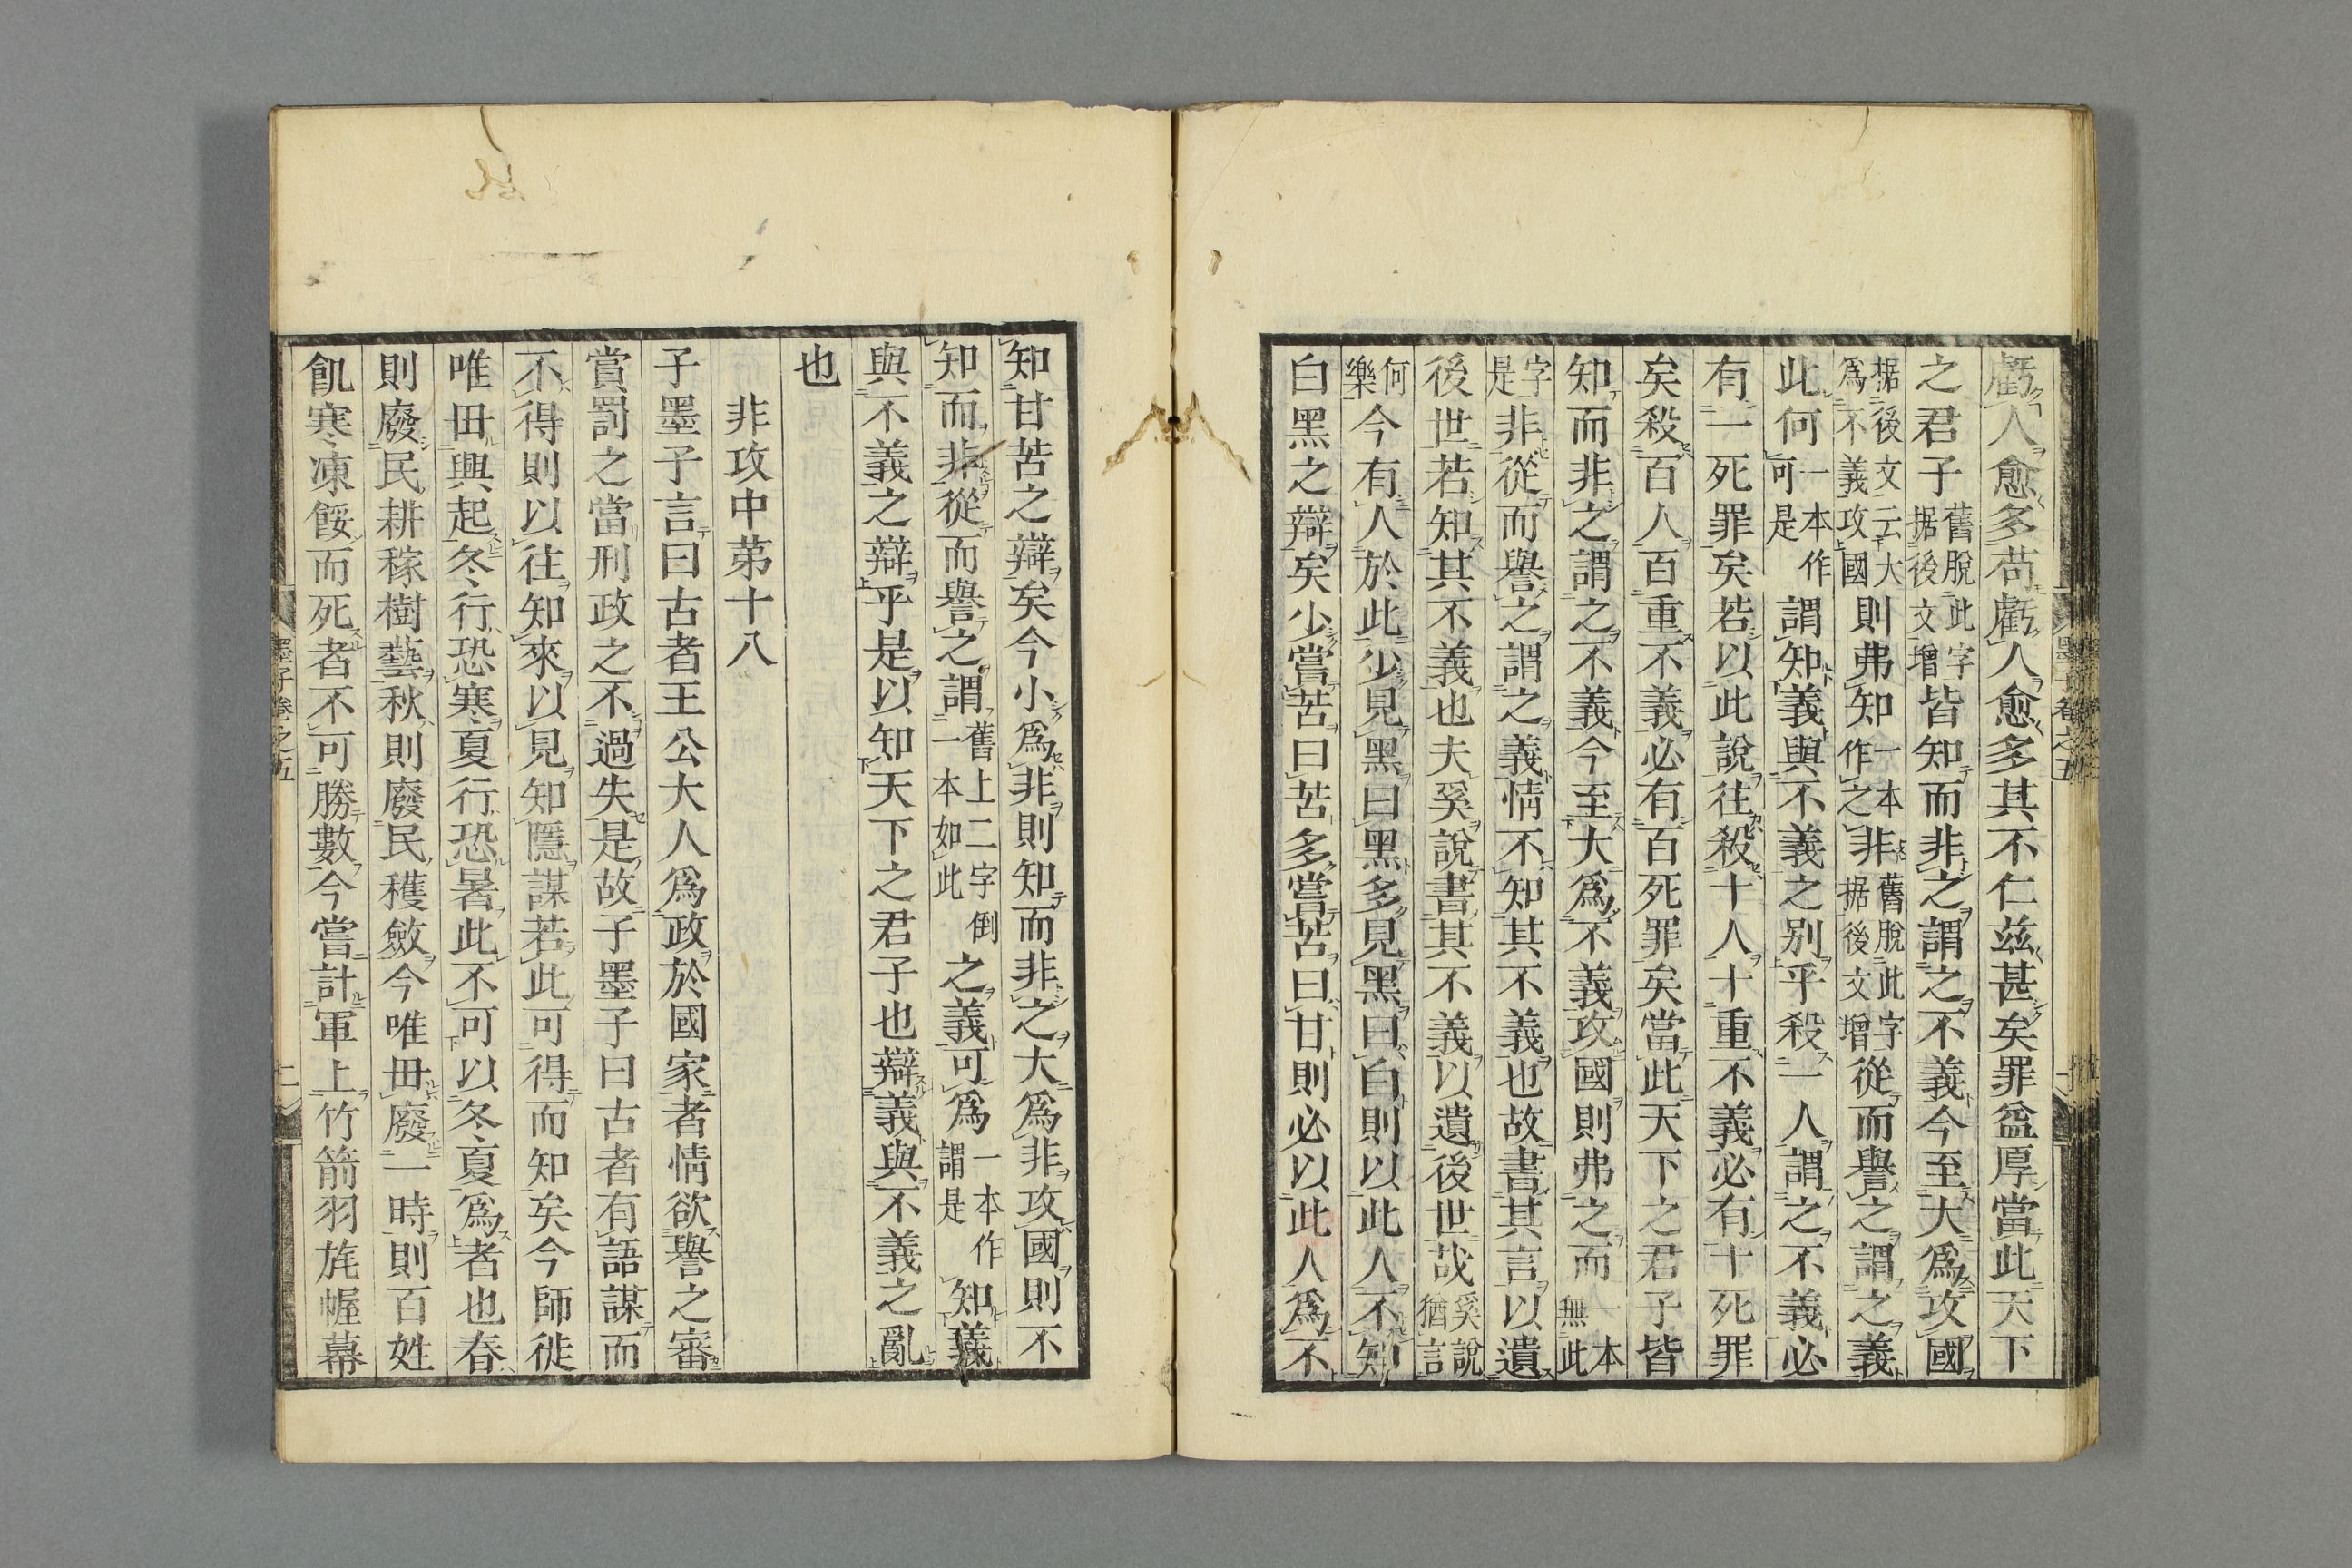 虧人愈多苟虧人愈多其不仁玆甚矣罪益厚當此天下
之君子舊脫此字据後文增皆知而非之謂之不義今至大爲攻國
据後文云大爲不義攻國則弗知一本作之非舊脫此字据後文增從而譽之謂之義
此何一本作可是謂知義與不義之別乎殺一人謂之不義必
有一死罪矣若以此說往殺十人十重不義必有十死罪
矣殺百人百重不義必有百死罪矣當此天下之君子皆
知而非之謂之不義今至大爲不義攻國則弗之而一本無此
字是非從而譽之謂之義情不知其不義也故書其言以遺
後世若知其不義也夫奚說書其不義以遺後世哉奚說猶言
何樂今有人於此少見黑曰黑多見黑曰白則以此人不知
白黑之辯矣少嘗苦曰苦多嘗苦曰甘則必以此人爲不
知甘苦之辯矣今小爲非則知而非之大爲非攻國則不
知而非從而譽之謂舊上二字倒一本如此之義可爲一本作謂是知義
與不義之辯乎是以知天下之君子也辯義與不義之亂
也
非攻中苐十八
子墨子言曰古者王公大人爲政於國家者情欲譽之審
賞罰之當刑政之不過失是故子墨子曰古者有語謀而
不得則以往知來以見知隱謀若此可得而知矣今師徙
唯毋興起冬行恐寒夏行恐暑此不可以冬夏爲者也春
則廢民耕稼樹藝秋則廢民穫斂今唯毋廢一時則百姓
飢寒凍餒而死者不可勝數今嘗計軍上竹箭羽旄幄幕
墨子卷之五